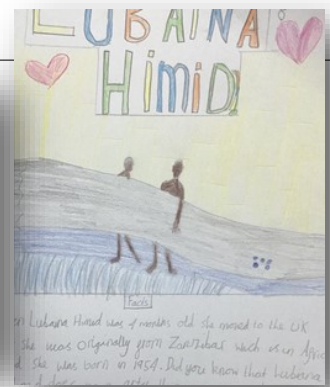 LUBAINA
HIMID
Facts
en Lubaina Himid was 4 months old she moved to the UK
she was originally from Zanzibar which is in Afric
d she was born in 1954. Did you know that Lubaina